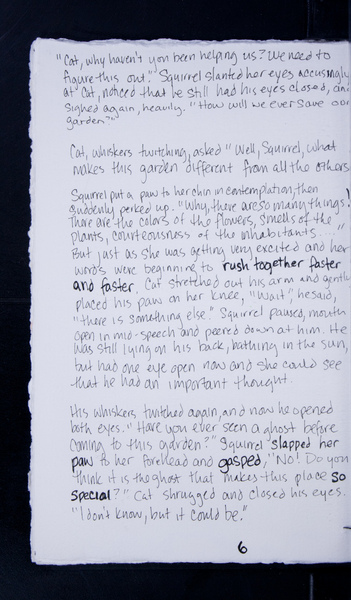 "Cat, why haven't you been helping us? We need to
figure this out." Squirrel slanted her eyes accusingly
at Cat, noticed that he still had his eyes closed, and
sighed again, heavily. "How will we ever save our
garden?"
Cat, whiskers twitching, asked "Well, Squirrel, what
makes this garden different from all the others
Squirrel put a paw to her chin in contemplation, then
suddenly perked up. "Why, there are so many things!
There are the colors of the flowers, smells of the
plants, courteousness of the inhabitants..."
But just as she was getting very excited and her
words were beginning to rush together faster
and faster, Cat stretched out his arm and gently
placed his paw on her knee, "Wait", he said,
"there is something else." Squirrel paused, mouth
open in mid-speech and peered down at him. He
was still lying on his back, bathing in the sun,
but had one eye open now and she could see
that he had an important thought.
His whiskers twitched again, and now he opened
both eyes. "Have you ever seen a ghost before
coming to this garden?" Squirrel slapped her
paw to her forehead and gasped, "No! Do you
think it is the ghost that makes this place so
special?" Cat shrugged and closed his eyes.
"I don't know, but it could be."
6